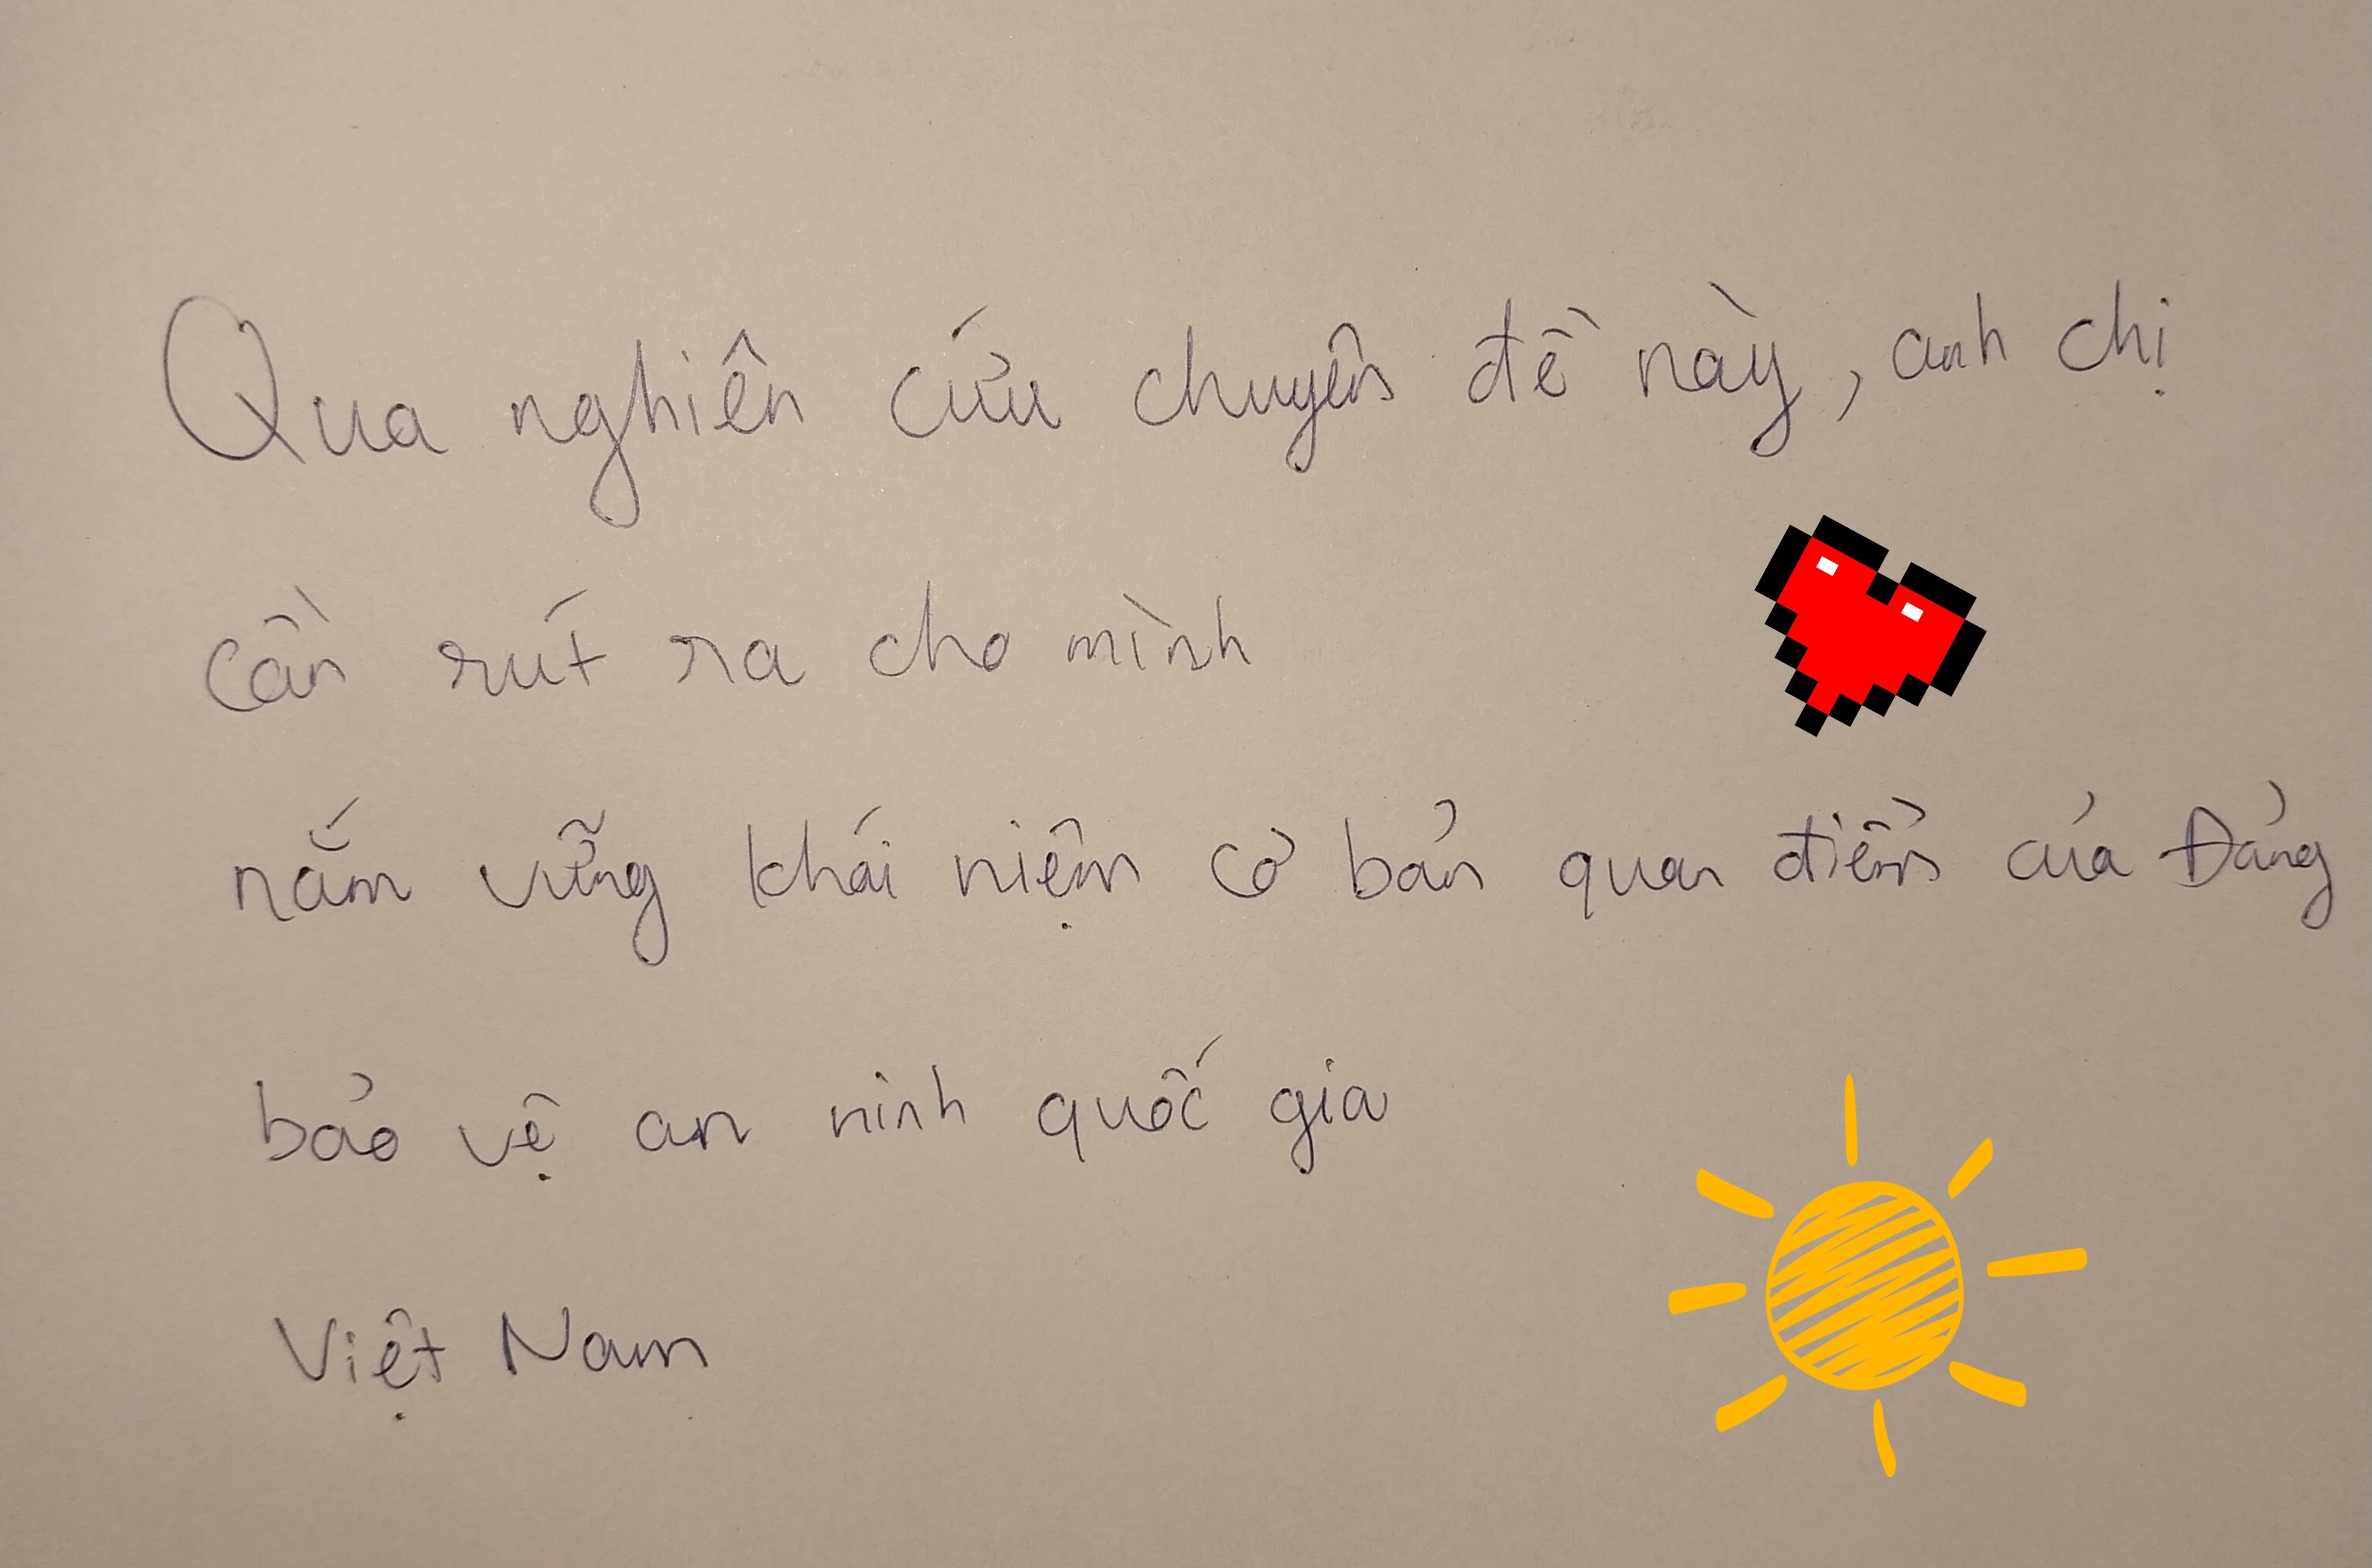 Qua nghiên cứu chuyên đề này, anh chị
cần rút ra cho mình
nắm vững khái niệm cơ bản quan điểm của Đảng
bảo vệ an ninh quốc gia
Việt Nam